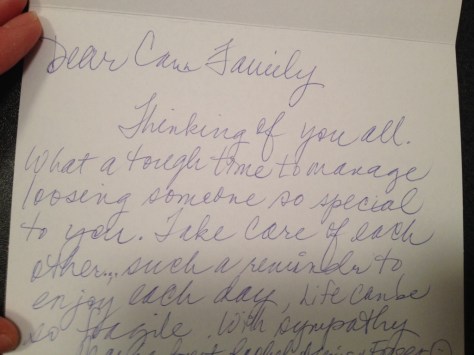 Dear Cava Family
Thinking of you all.
What a tough time to manage
loosing someone so special
to you. Take care of each
other... such a reminder to
enjoy each day, Life can be
so fragile. With sympathy